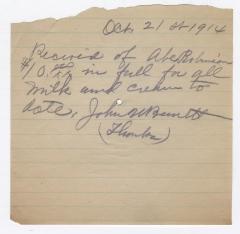 Oct 21st 1914
Received of A.C. Robinson
$10.00 in full for all
milk and cream to
date, John W Burnett
(Thanks)